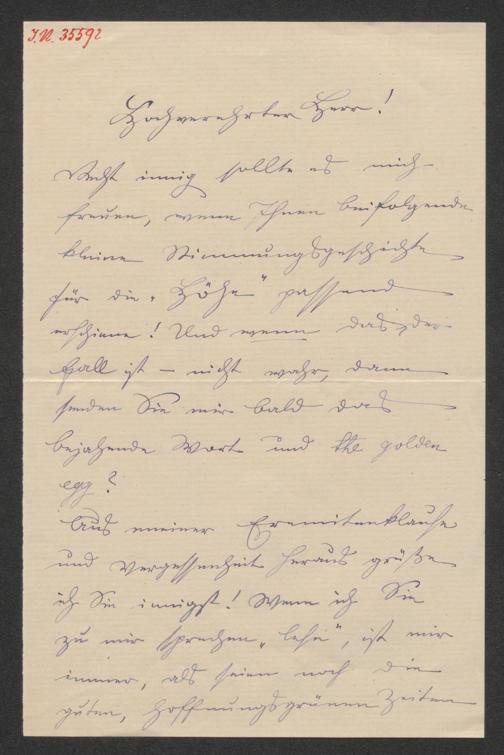 I.N. 35592
Hochverehrter Herr!
Recht innig sollte es mich
freuen, wenn Ihnen beifolgende
kleine Stimmungsgeschichte
für die „Höhe" passend
erschiene! Und wenn das der
Fall ist – nicht wahr, dann
senden Sie mir bald das
bejahende Wort und the golden
egg?
Aus meiner Eremitenklause
und Vergessenheit heraus grüße
ich Sie innigst! Wenn ich Sie
zu mir sprechen „lese", ist mir
immer, als seien noch die
guten, hoffnungsgrünen Zeiten